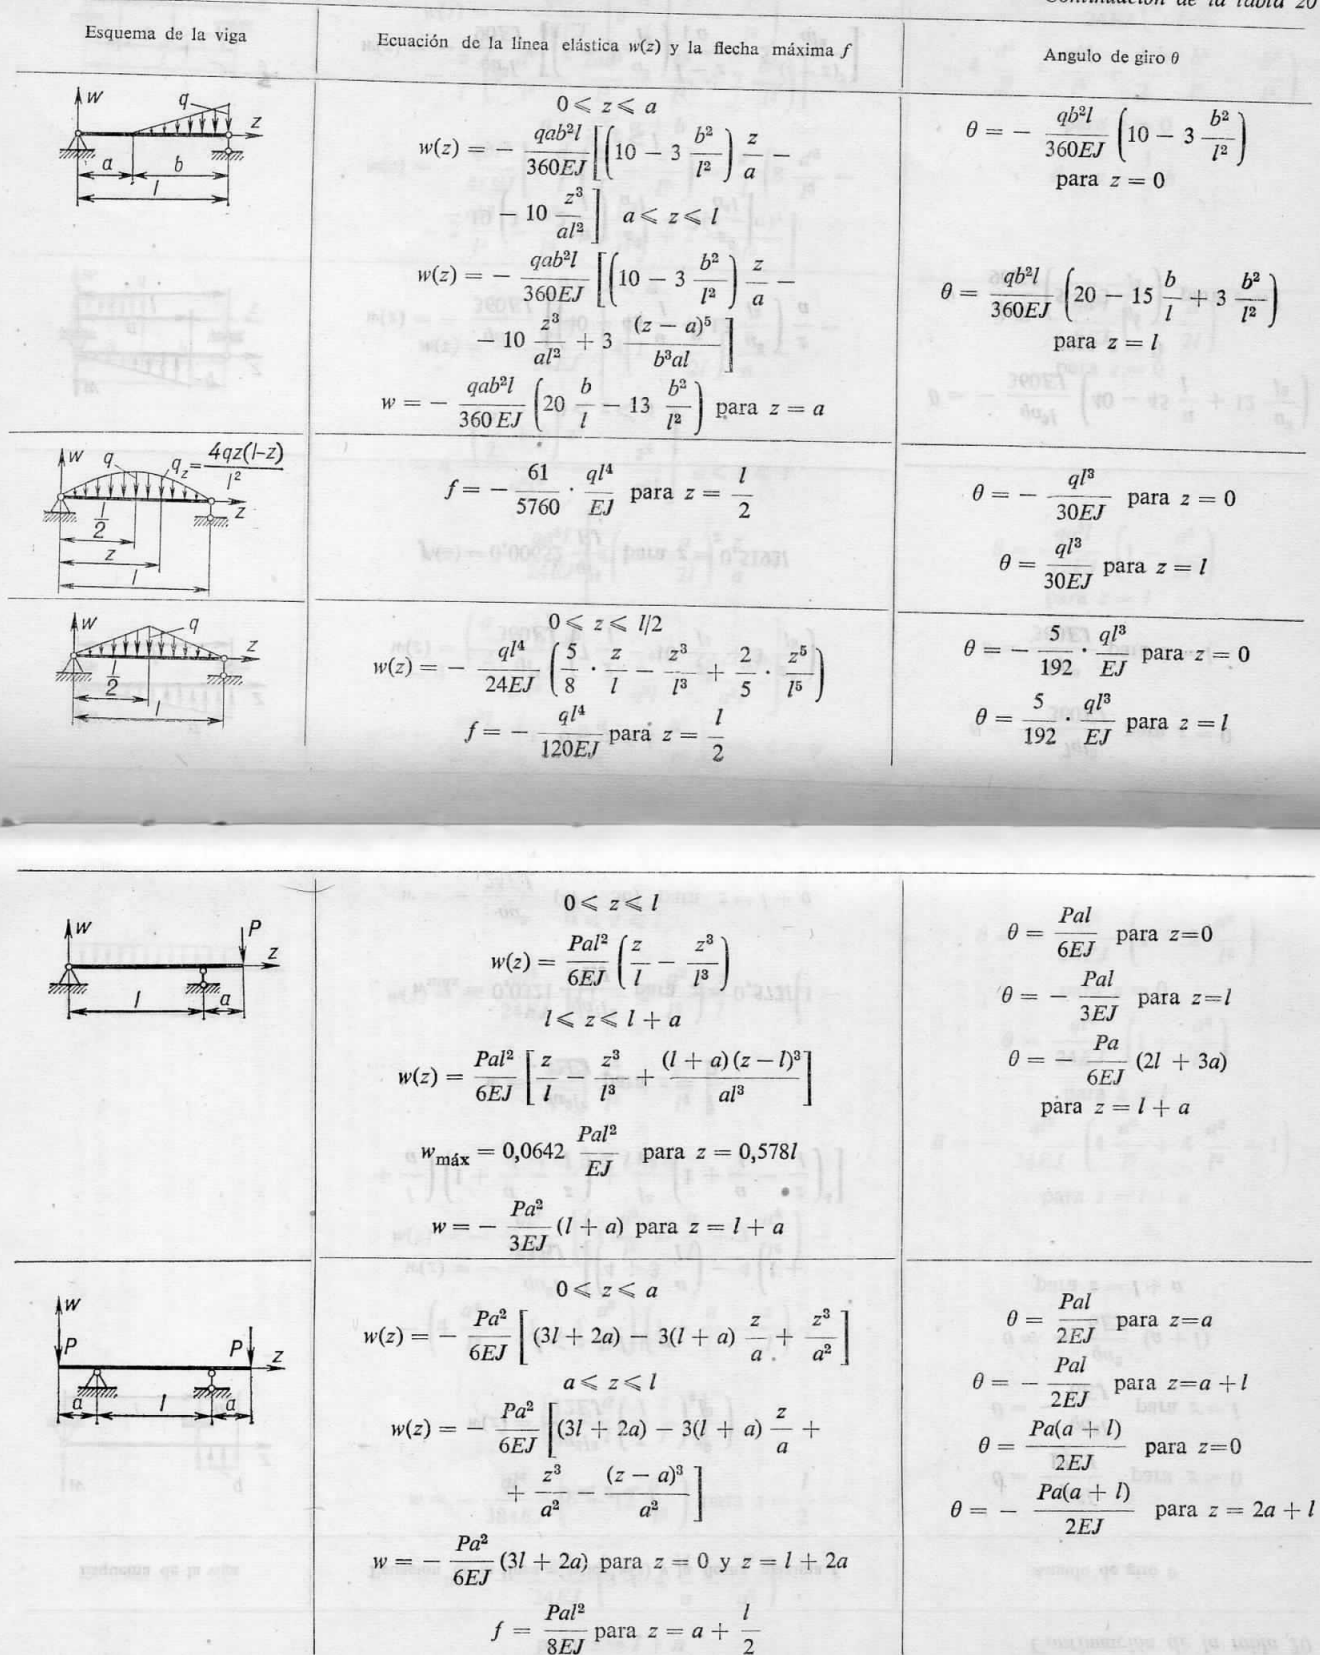 Continuación de la tabla 20
Esquema de la viga
Ecuación de la línea elástica w(z) y la flecha máxima f
Angulo de giro θ
w
q
z
a
b
l
0 ⩽ z ⩽ a
w(z) = − qab²l/360EJ [(10 − 3 b²/l²) z/a −
− 10 z³/al²] a ⩽ z ⩽ l
w(z) = − qab²l/360EJ [(10 − 3 b²/l²) z/a −
− 10 z³/al² + 3 (z − a)⁵/b³al]
w = − qab²l/360EJ (20 b/l − 13 b²/l²) para z = a
θ = − qb²l/360EJ (10 − 3 b²/l²)
para z = 0
θ = qb²l/360EJ (20 − 15 b/l + 3 b²/l²)
para z = l
w
q
q_z = 4qz(l-z)/l²
z
l/2
z
l
f = − 61/5760 · ql⁴/EJ para z = l/2
θ = − ql³/30EJ para z = 0
θ = ql³/30EJ para z = l
w
q
z
l/2
l
0 ⩽ z ⩽ l/2
w(z) = − ql⁴/24EJ (5/8 · z/l − z³/l³ + 2/5 · z⁵/l⁵)
f = − ql⁴/120EJ para z = l/2
θ = − 5/192 · ql³/EJ para z = 0
θ = 5/192 · ql³/EJ para z = l
w
P
z
l
a
0 ⩽ z ⩽ l
w(z) = Pal²/6EJ (z/l − z³/l³)
l ⩽ z ⩽ l + a
w(z) = Pal²/6EJ [z/l − z³/l³ + (l + a)(z − l)³/al³]
w_máx = 0,0642 Pal²/EJ para z = 0,578l
w = − Pa²/3EJ (l + a) para z = l + a
θ = Pal/6EJ para z=0
θ = − Pal/3EJ para z=l
θ = − Pa/6EJ (2l + 3a)
para z = l + a
w
P
P
z
a
l
a
0 ⩽ z ⩽ a
w(z) = − Pa²/6EJ [(3l + 2a) − 3(l + a) z/a + z³/a²]
a ⩽ z ⩽ l
w(z) = − Pa²/6EJ [(3l + 2a) − 3(l + a) z/a +
+ z³/a² − (z − a)³/a²]
w = − Pa²/6EJ (3l + 2a) para z = 0 y z = l + 2a
f = Pal²/8EJ para z = a + l/2
θ = Pal/2EJ para z=a
θ = − Pal/2EJ para z=a + l
θ = Pa(a + l)/2EJ para z=0
θ = − Pa(a + l)/2EJ para z = 2a + l